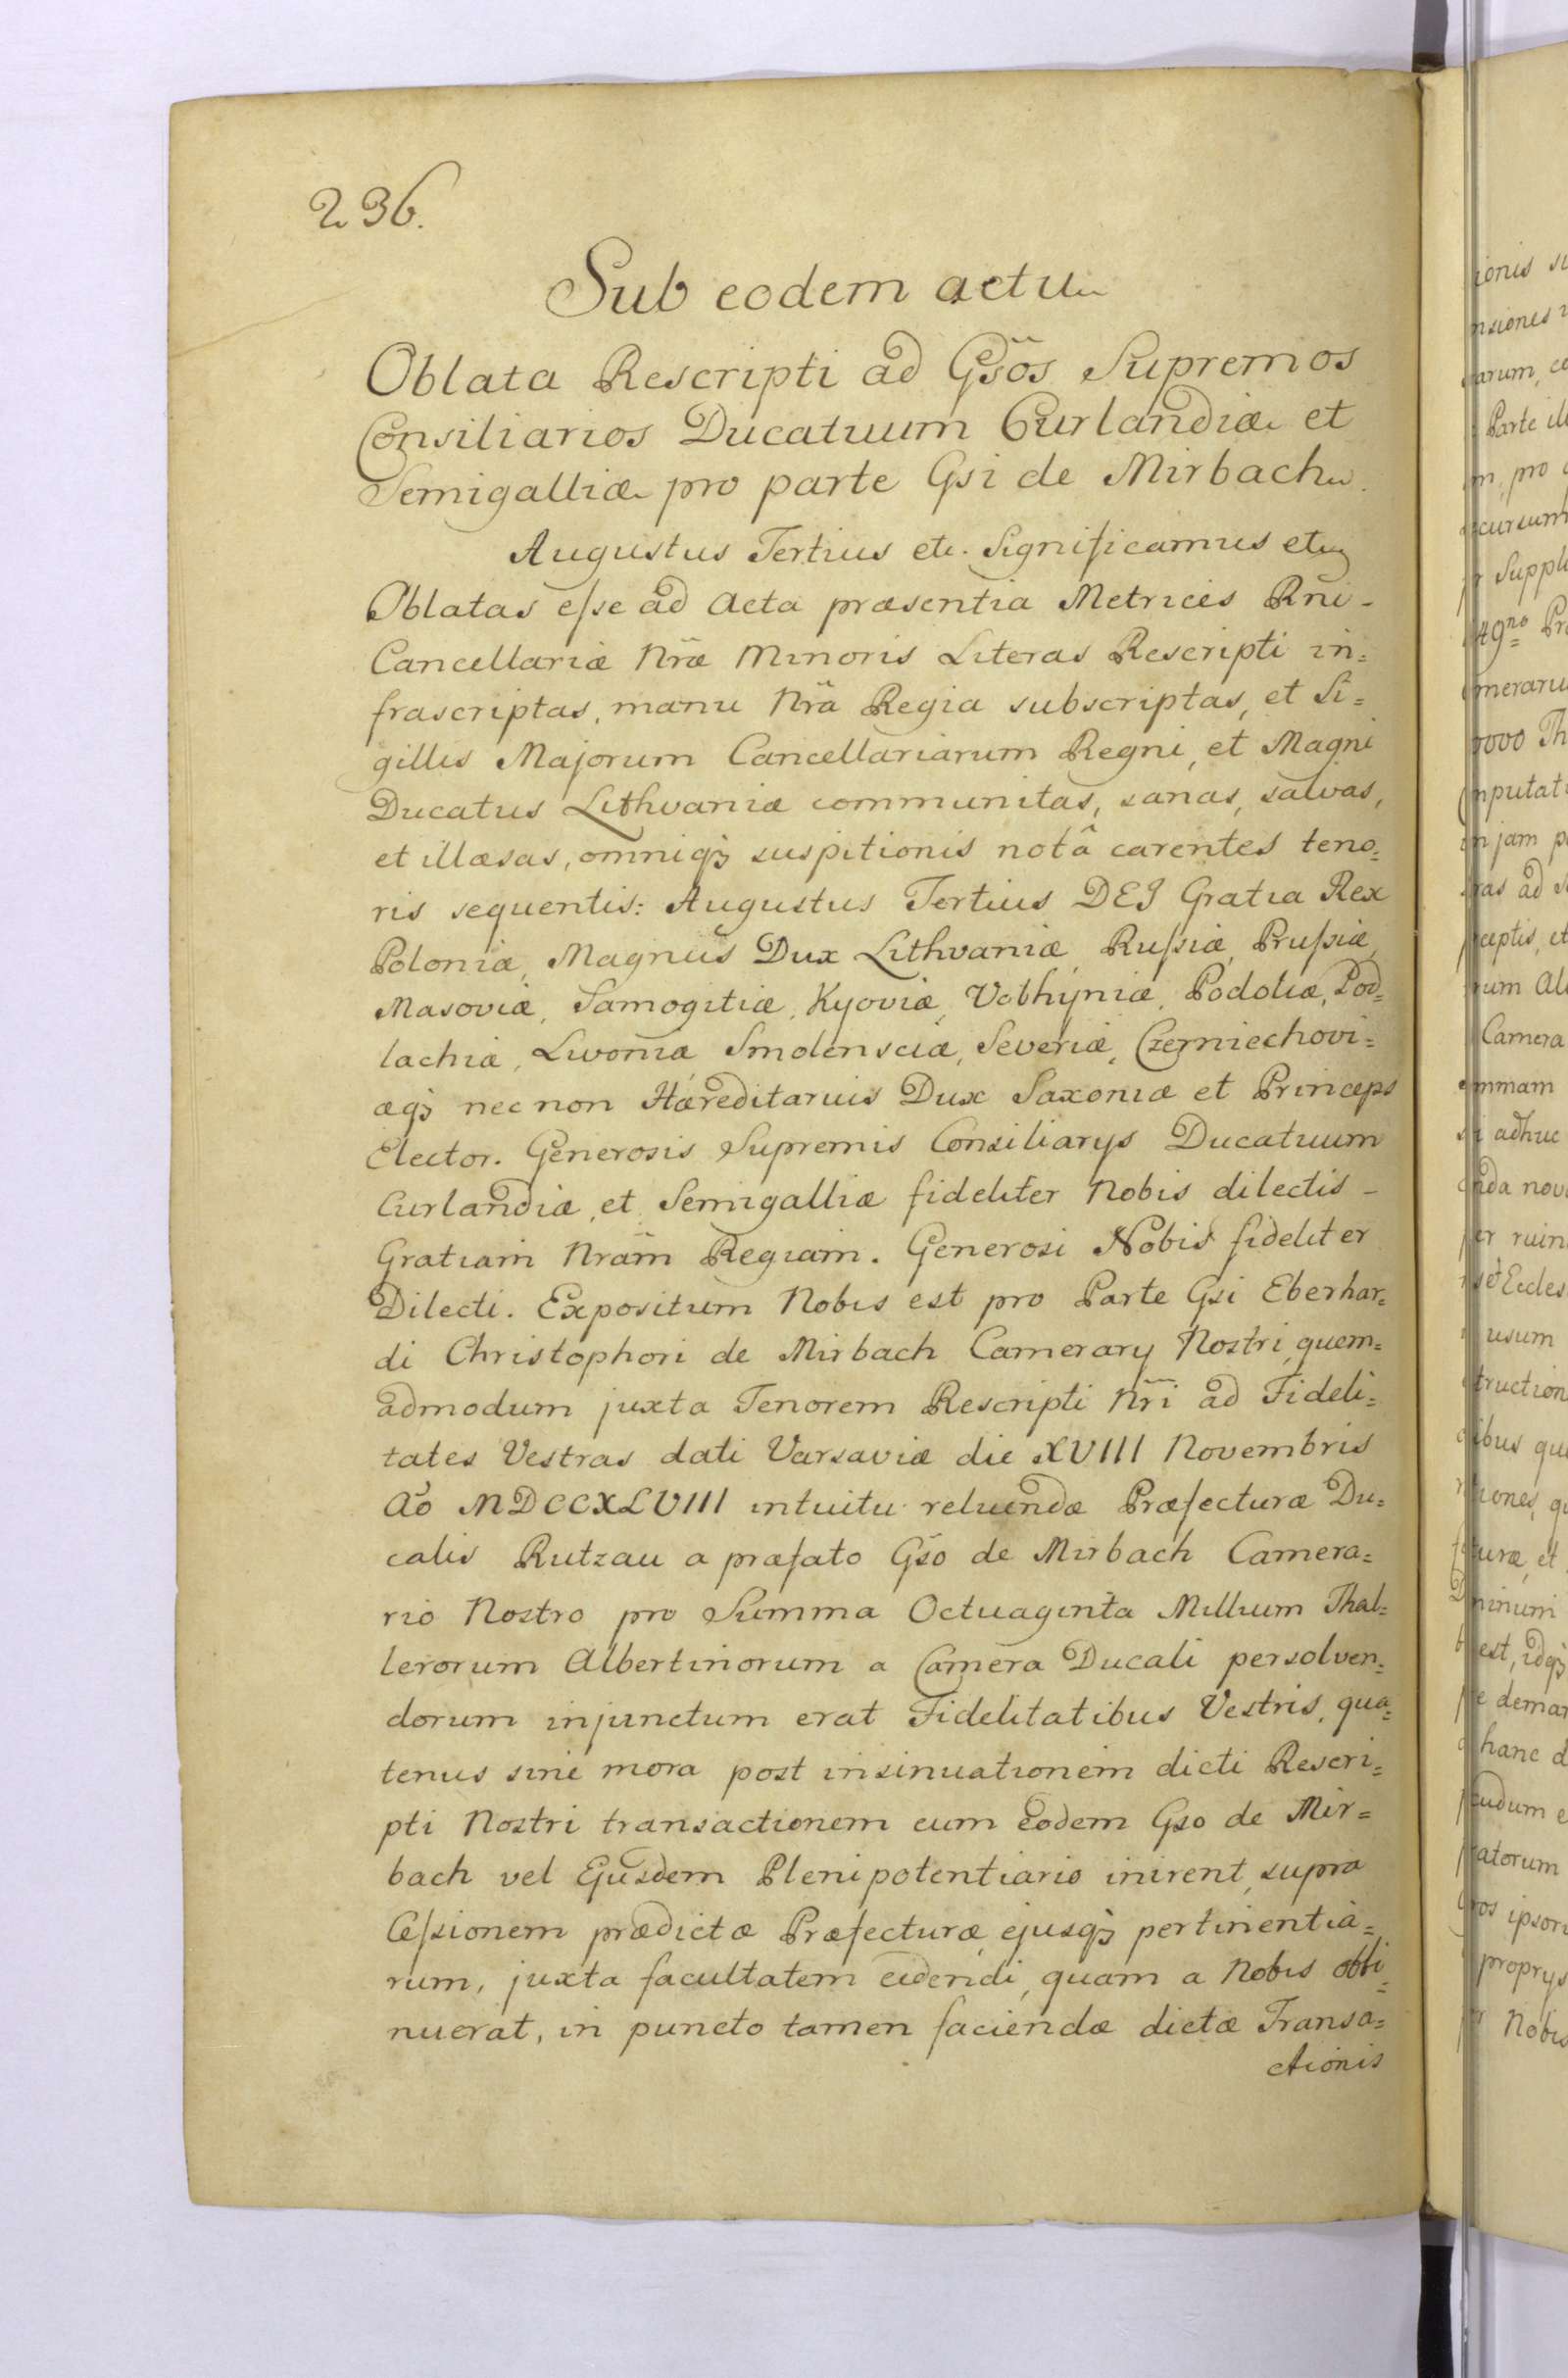 236.
Sub eodem actu
Oblata Rescripti ad Gsõs Supremos
Consiliarios Ducatuum Curlandiæ et
Semigalliæ pro parte Gsi de Mirbach.
Augustus Tertius etc. Significamus etc
Oblatas eſse ad Acta præsentia Metrices Rni-
Cancellariæ Nrãe Minoris Literas Rescripti in=
frascriptas, manu Nrã Regia subscriptas, et Si=
gillis Majorum Cancellariarum Regni, et Magni
Ducatus Lithvaniæ communitas, sanas, salvas,
et illæsas, omniqȝ suspitionis notâ carentes teno=
ris sequentis: Augustus Tertius DEI Gratia Rex
Poloniæ, Magnus Dux Lithvaniæ, Ruſsiæ, Pruſsiæ,
Masoviæ, Samogitiæ, Kyoviæ, Volhyniæ, Podoliæ, Pod=
lachiæ, Livoniæ Smolensciæ, Severiæ, Czerniechovi=
æqȝ nec non Hæreditarius Dux Saxoniæ et Princeps
Elector. Generosis Supremis Consiliarys Ducatuum
Curlandiæ, et Semigalliæ fideliter Nobis dilectis -
Gratiam Nrãm Regiam. Generosi Nobis fideliter
Dilecti. Expositum Nobis est pro Parte Gsi Eberhar=
di Christophori de Mirbach Camerary Nostri, quem=
admodum juxta Tenorem Rescripti Nrĩ ad Fideli=
tates Vestras dati Varsaviæ die XVIII Novembris
Aõ MDCCXLVIII intuitu reluendæ Præfecturæ Du=
calis Rutzau a præfato Gso de Mirbach Camera=
rio Nostro pro Summa Octuaginta Millium Thal=
lerorum Albertinorum a Camera Ducali persolven=
dorum injunctum erat Fidelitatibus Vestris, qua=
tenus sine mora post insinuationem dicti Rescri=
pti Nostri transactionem cum eodem Gso de Mir=
bach vel Ejusdem Plenipotentiario inirent, supra
Ceſsionem prædictæ Præfecturæ, ejusqȝ pertinentia=
rum, juxta facultatem cedendi, quam a Nobis obti=
nuerat, in puncto tamen faciendæ dictæ Transa=
ctionis